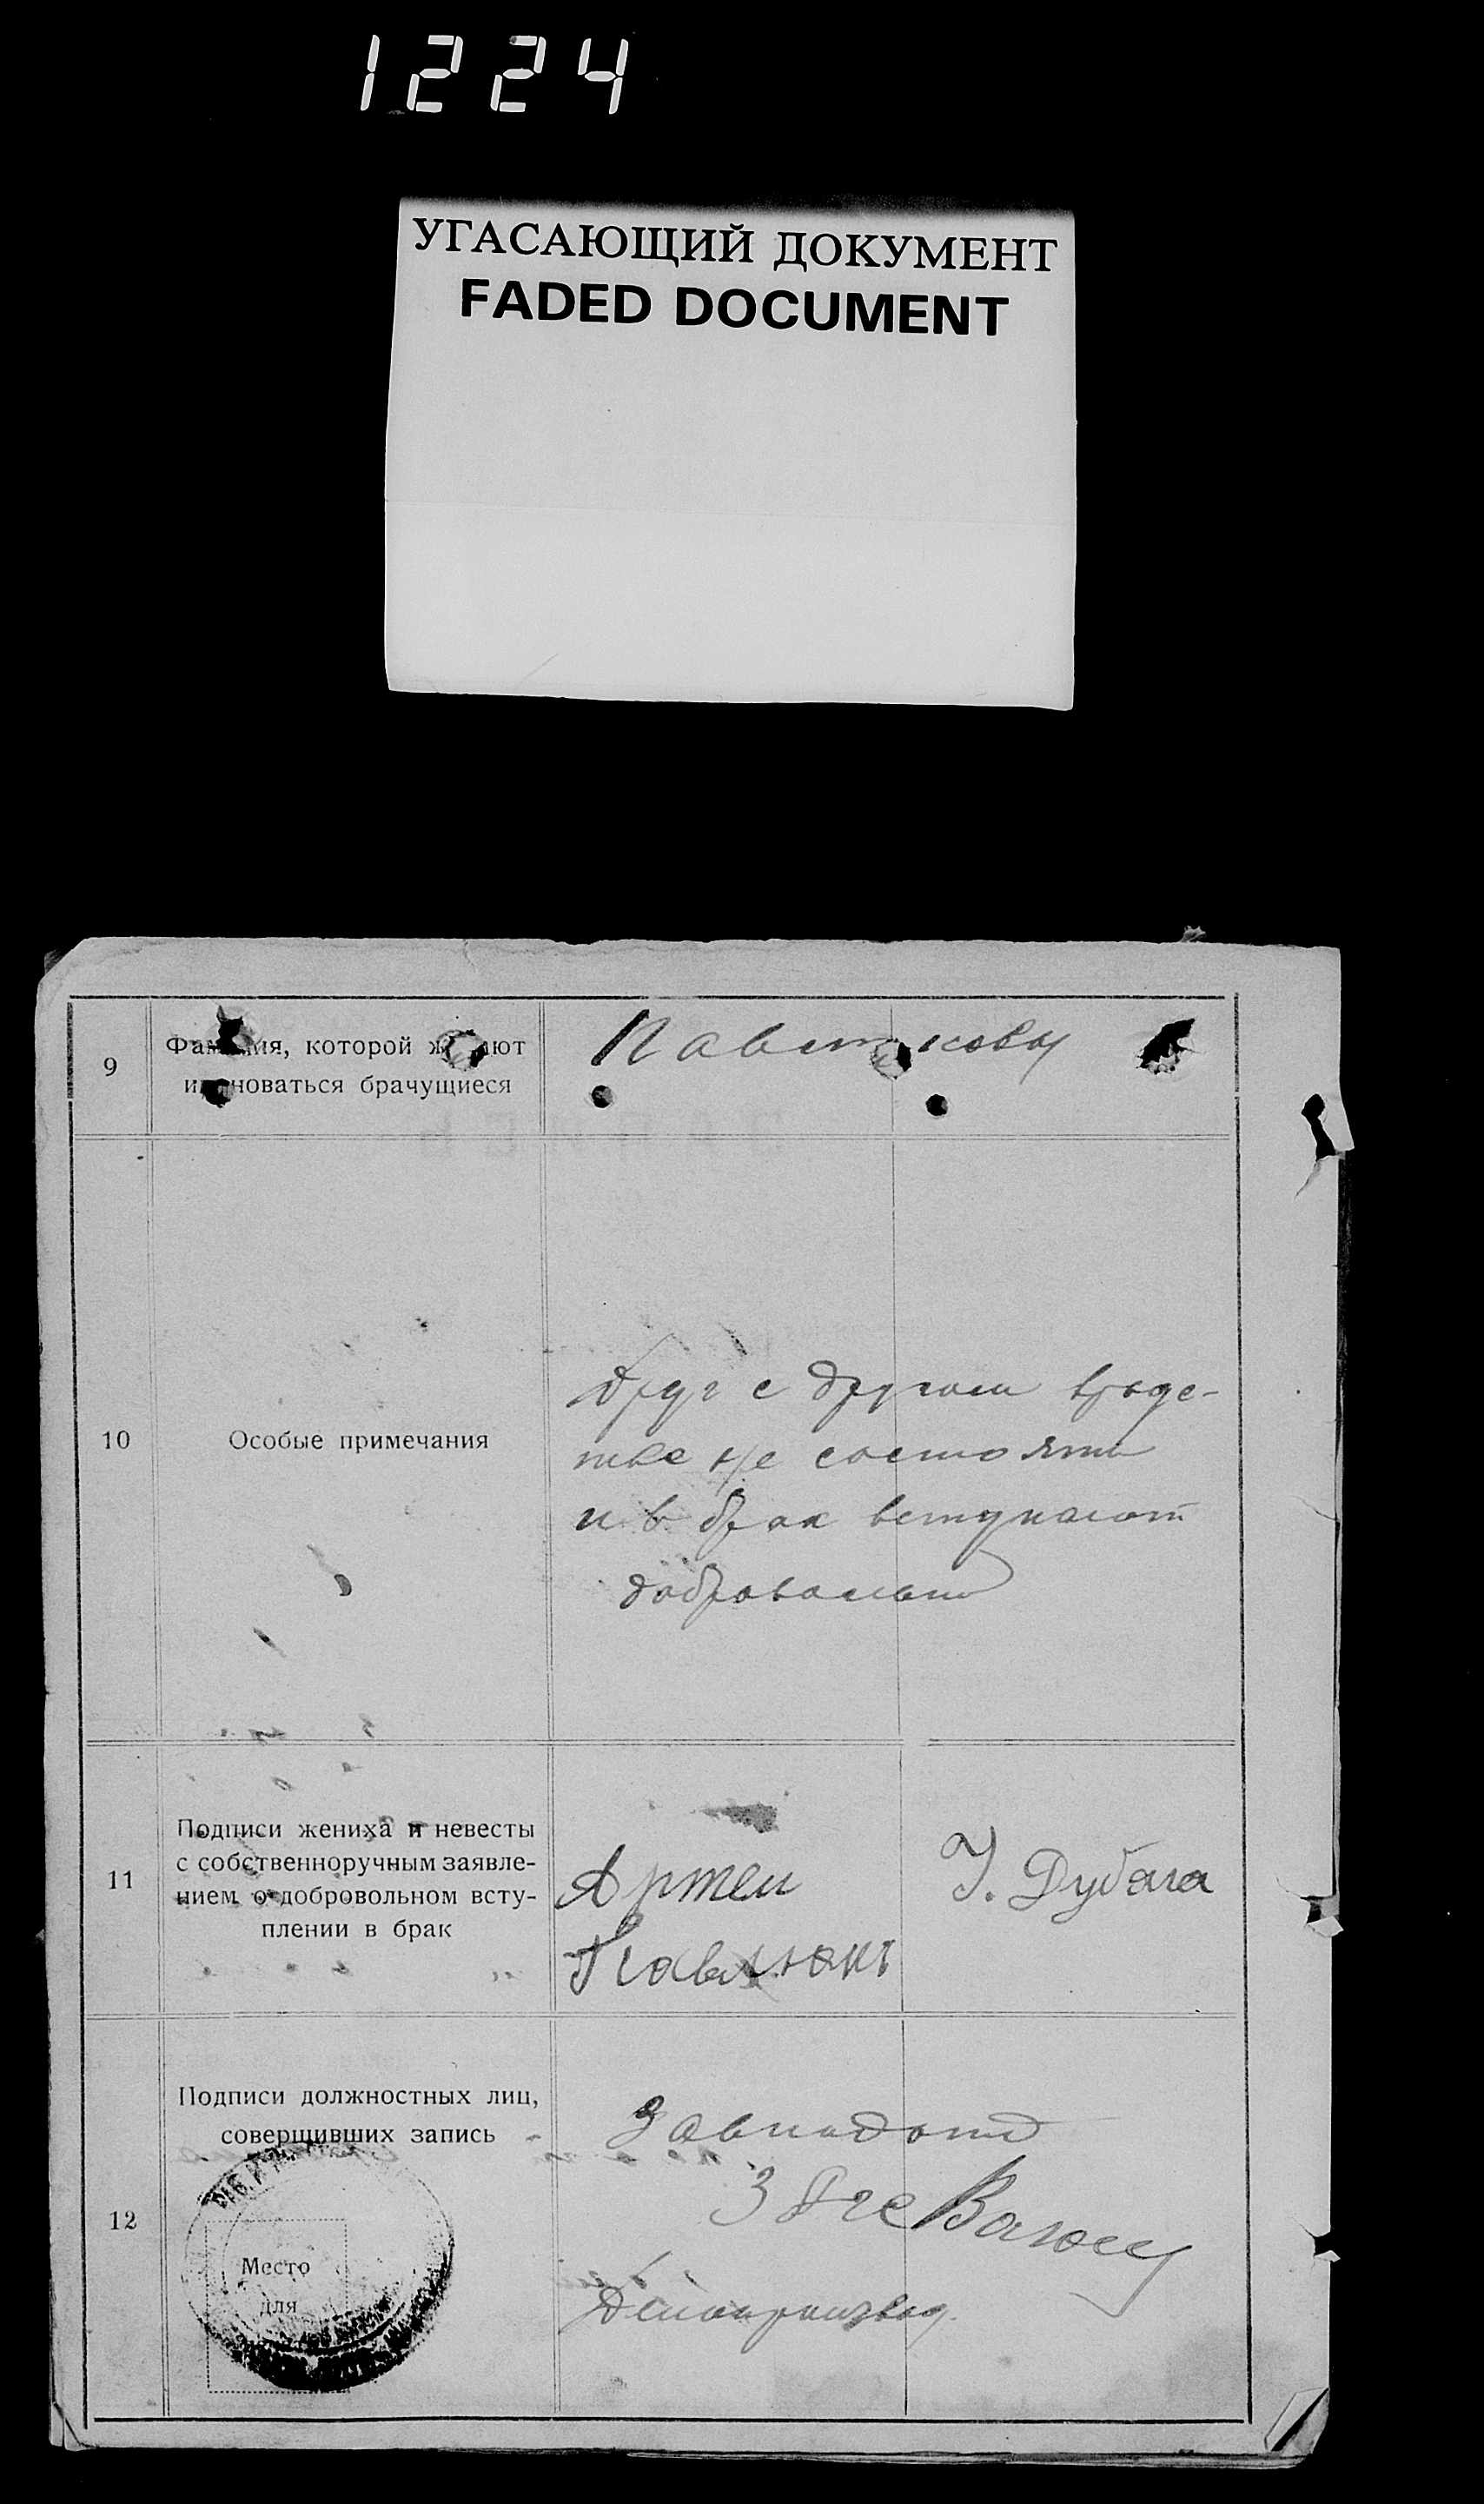 1224
УГАСАЮЩИЙ ДОКУМЕНТ
FADED DOCUMENT
9
Фамилия, которой желают
именоваться брачущиеся
10
Особые примечания
друг с другом вроде-
тве не состоят
и в брак вступают
добровольно
11
Подписи жениха и невесты
с собственноручным заявле-
нием о добровольном всту-
плении в брак
Артем
Павлюкъ
Дубага
12
Подписи должностных лиц,
совершивших запись
Место
для
Делопроизвод.